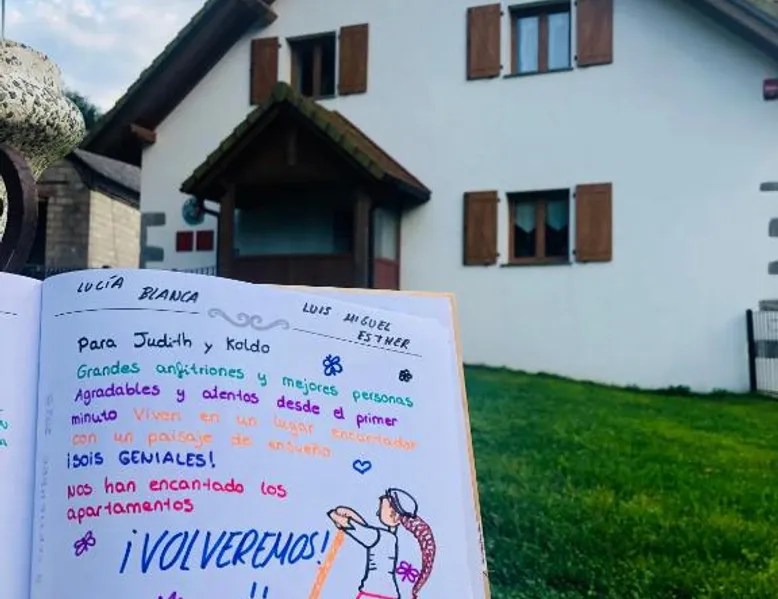 LUCÍA BLANCA
LUIS MIGUEL
ESTHER
Para Judith y Koldo
Grandes anfitriones y mejores personas
Agradables y atentos desde el primer
minuto Viven en un lugar encantador
con un paisaje de ensueño
¡SOIS GENIALES!
Nos han encantado los
apartamentos
¡VOLVEREMOS!